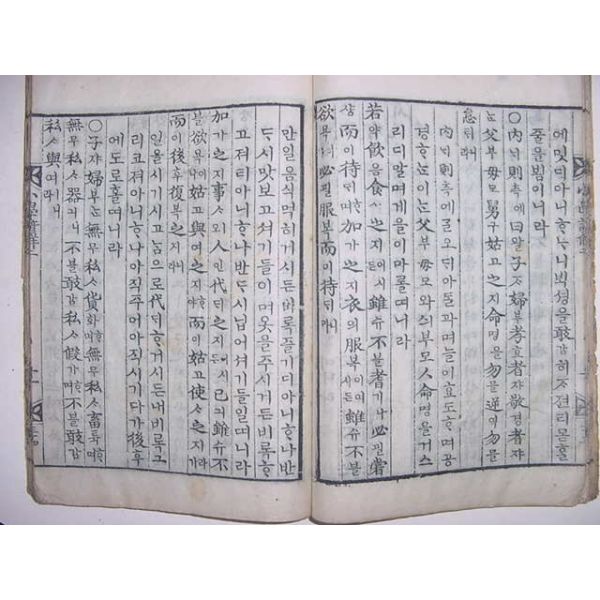 에밋디아니ᄒᆞᄂᆞ니ᄇᆡᆨ셩을敢감히ᄒᆞ젼티몯ᄒᆞᆯ
줄을뵘이니라
○內ᄂᆡ則측에曰왈子ᄌᆞ婦부孝효者쟈敬경者쟈
ᄂᆞᆫ父부母모舅구姑고之지命명을勿믈逆역勿믈
怠ᄐᆡ니라
內ᄂᆡ則측에ᄀᆞᆯ오ᄃᆡ아ᄃᆞᆯ과며ᄂᆞ리효도ᄒᆞ며공
경ᄒᆞᄂᆞᆫ이ᄂᆞᆫ父부母모와싀부모人命명을거스
리디말며게을이마롤띠니라
若약飮음食ᄉᆞ之지어시든雖슈不블耆기나必필嘗
샹而이待ᄃᆡᄒᆞ며加가之지衣의服복이어시든雖슈不블
欲욕이나必필服복而이待ᄃᆡ니라
만일음식먹히거시든비록즐기디아니ᄒᆞ나반
ᄃᆞ시맛보고셔기들이며옷을주시거든비록ᄒᆞ
고져티아니ᄒᆞ나반ᄃᆞ시닙어셔기들일띠니라
加가之지事ᄉᆞ오人인代ᄃᆡ之지어시든己긔雖슈不
블欲욕이나姑고與여之지ᄒᆞ야而이姑고使ᄉᆞ之지라가
而이後후復복之지니라
일을시기시고ᄂᆞᆷ으로代ᄃᆡᄒᆞ거시든내비록그
리코져아니ᄒᆞ나아직주어아직시기다가後후
에도로홀띠니라
○子ᄌᆞ婦부ᄂᆞᆫ無무私ᄉᆞ貨화ᄒᆞ며無무私ᄉᆞ畜튝ᄒᆞ며
無무私ᄉᆞ器긔니不블敢감私ᄉᆞ假가ᄒᆞ며不블敢감
私ᄉᆞ與여ㅣ니라